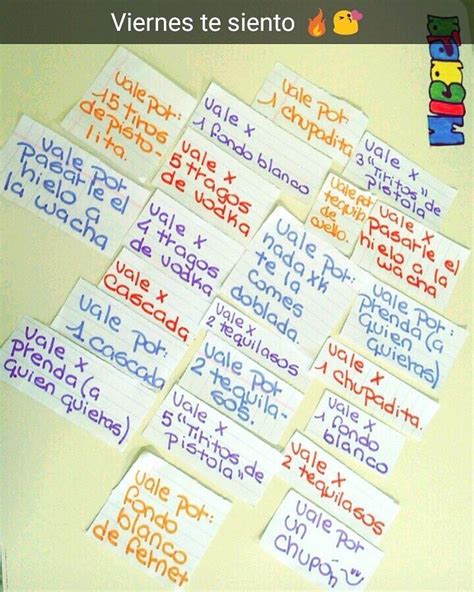 Viernes te siento 🔥😘
vale por:
15 tiros
de pisto-
lita.
vale x
1 fondo blanco
vale por
1 chupadita
vale x
3 "tiritos de
pistola"
vale por
Pasarle el
hielo a
la wacha
vale x
5 tragos
de vodka
vale por
tequila
de
ovello.
vale x
Pasarle el
hielo a la
wacha
vale x
4 tragos
de vodka
vale por:
nada xk
te la
comes
doblada.
vale x
cascada.
vale por:
prenda (a
quien
quieras)
vale por:
1 cascada
vale x
2 tequilasos
vale x
prenda (a
quien quieras)
vale por
2 tequila-
sos.
vale x
1 chupadita.
vale x
5 "tiritos de
pistola"
vale x
1 fondo
blanco
vale x
2 tequilasos
vale por:
fondo
blanco
de fernet
vale por
un
chupón